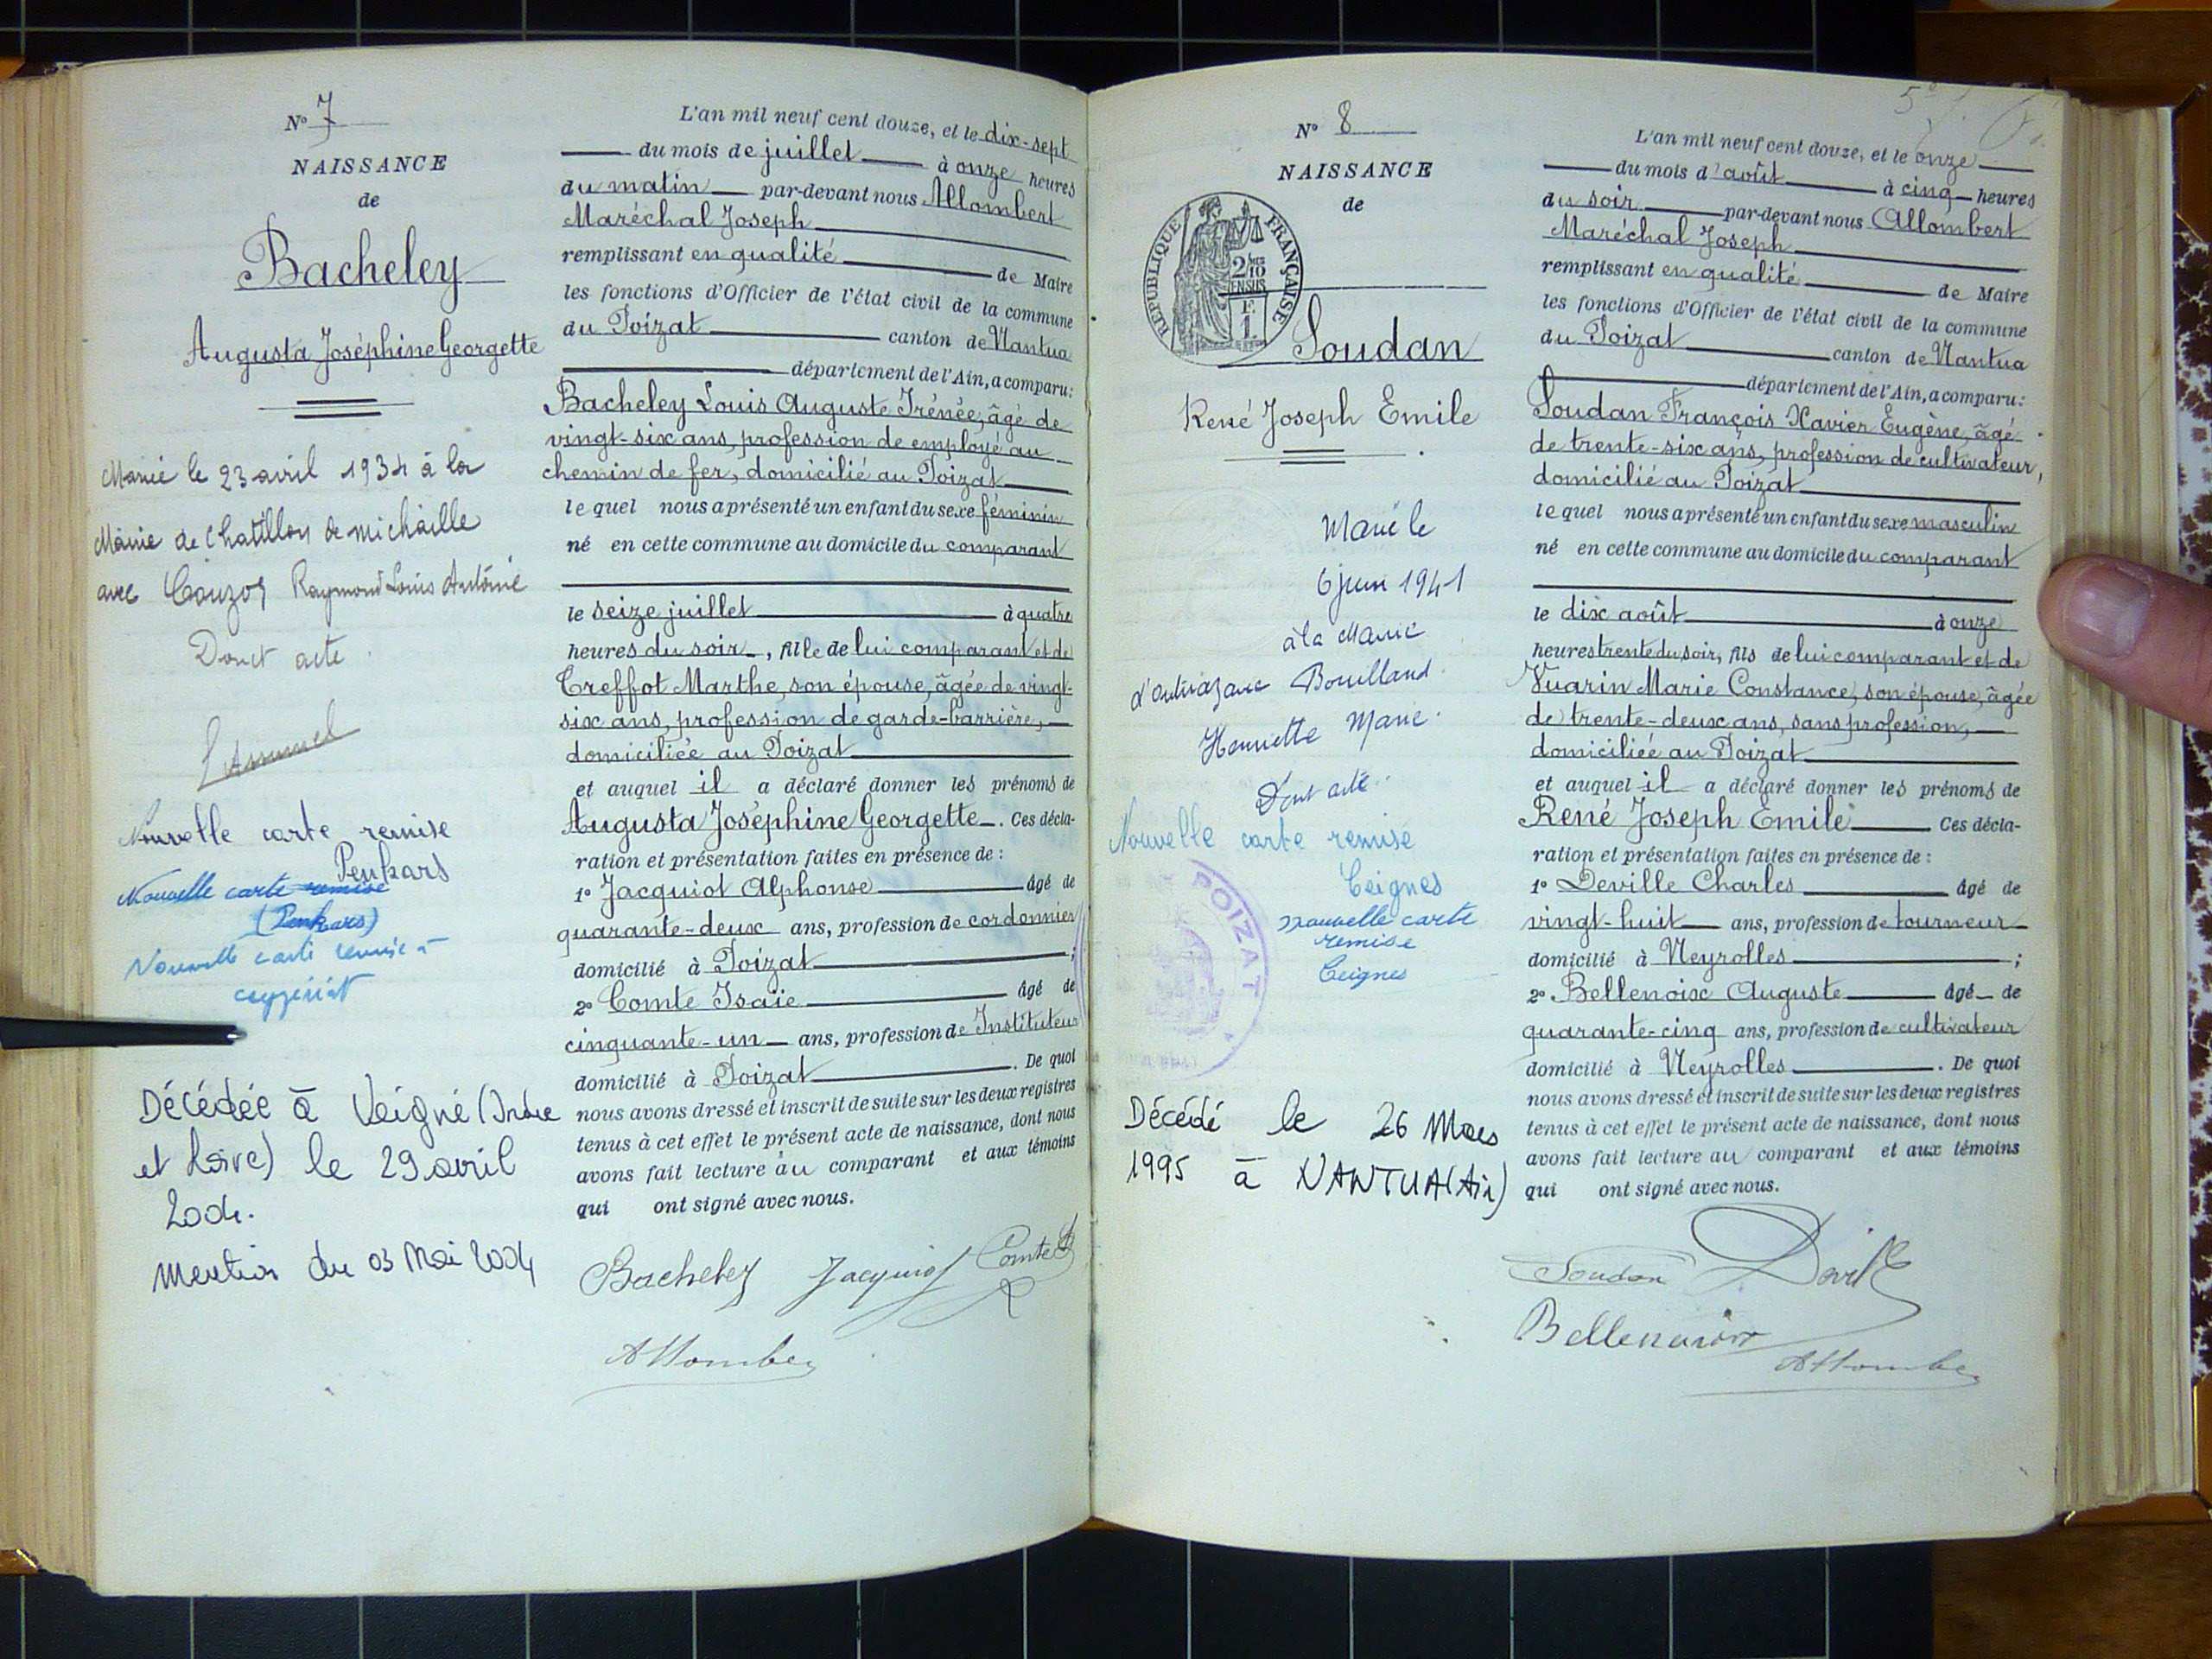 N° 7
NAISSANCE
de
Bacheley
Augusta Joséphine Georgette
Marié le 23 avril 1934 à la
Mairie de Chatillon de michaille
avec Couzon Raymond Louis Antoine
Dont acte.
Nouvelle carte remise
Nouvelle carte remise
Nouvelle carte remise à
ceyzeriat
Décédée à Veigné (Indre
et Loire) le 29 avril
2004.
Mention du 03 Mai 2004
L'an mil neuf cent douze, et le dix-sept
du mois de juillet à onze heures
du matin par-devant nous Allombert
Maréchal Joseph
remplissant en qualité de Maire
les fonctions d'Officier de l'état civil de la commune
du Poizat canton de Nantua
département de l'Ain, a comparu:
Bacheley Louis Auguste Irénée, âgé de
vingt-six ans, profession de employé au
chemin de fer, domicilié au Poizat
lequel nous a présenté un enfant du sexe féminin
né en cette commune au domicile du comparant
le seize juillet à quatre
heures du soir, fille de lui comparant et de
Creffot Marthe, son épouse, âgée de vingt-
six ans, profession de garde-barrière,
domiciliée au Poizat
et auquel il a déclaré donner les prénoms de
Augusta Joséphine Georgette. Ces décla-
ration et présentation faites en présence de :
1° Jacquiot Alphonse âgé de
quarante-deux ans, profession de cordonnier
domicilié à Poizat ;
2° Comte Isaïe âgé de
cinquante-un ans, profession de Instituteur
domicilié à Poizat . De quoi
nous avons dressé et inscrit de suite sur les deux registres
tenus à cet effet le présent acte de naissance, dont nous
avons fait lecture au comparant et aux témoins
qui ont signé avec nous.
Bacheley Jacquiot Comte
Allombert
N° 8
NAISSANCE
de
RÉPUBLIQUE FRANÇAISE
2/10
EN SUS
F.
1.
Soudan
René Joseph Emile
Marié le
6 juin 1941
à la Mairie
d'outriaz avec Bouilland
Henriette Marie.
Dont acte.
Nouvelle carte remise
Ceignes
nouvelle carte
remise
Ceignes
POIZAT
Décédé le 26 Mars
1995 à NANTUA (Ain)
L'an mil neuf cent douze, et le onze
du mois d'août à cinq heures
du soir par-devant nous Allombert
Maréchal Joseph
remplissant en qualité de Maire
les fonctions d'Officier de l'état civil de la commune
du Poizat canton de Nantua
département de l'Ain, a comparu:
Soudan François Xavier Eugène, âgé
de trente-six ans, profession de cultivateur,
domicilié au Poizat
lequel nous a présenté un enfant du sexe masculin
né en cette commune au domicile du comparant
le dix août à onze
heures trente du soir, fils de lui comparant et de
Vuarin Marie Constance, son épouse, âgée
de trente-deux ans, sans profession,
domiciliée au Poizat
et auquel il a déclaré donner les prénoms de
René Joseph Emile Ces décla-
ration et présentation faites en présence de :
1° Deville Charles âgé de
vingt-huit ans, profession de tourneur
domicilié à Neyrolles ;
2° Bellenoix Auguste âgé de
quarante-cinq ans, profession de cultivateur
domicilié à Neyrolles . De quoi
nous avons dressé et inscrit de suite sur les deux registres
tenus à cet effet le présent acte de naissance, dont nous
avons fait lecture au comparant et aux témoins
qui ont signé avec nous.
Soudan Deville
Bellenoix
Allombert